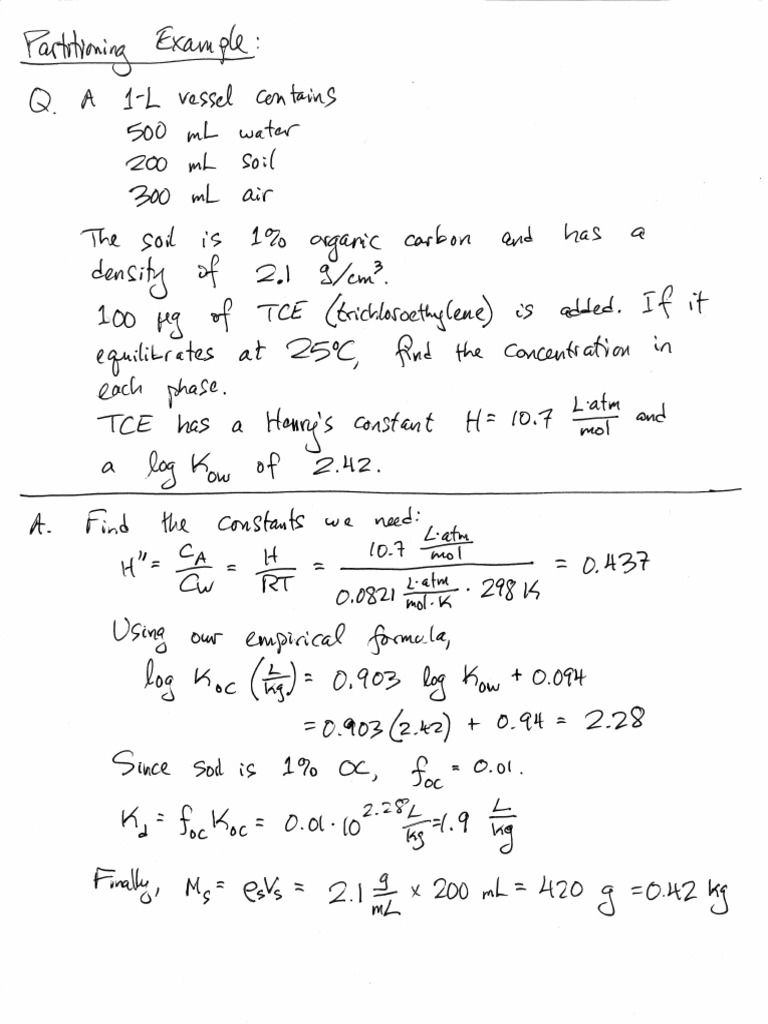 Partitioning Example:
Q. A 1-L vessel contains
500 mL water
200 mL soil
300 mL air
The soil is 1% organic carbon and has a
density of 2.1 g/cm³.
100 μg of TCE (trichloroethylene) is added. If it
equilibrates at 25°C, find the concentration in
each phase.
TCE has a Henry's constant H = 10.7 L·atm/mol and
a log Kow of 2.42.
A. Find the constants we need:
H" = CA/CW = H/RT = 10.7 L·atm/mol / 0.0821 L·atm/mol·K · 298 K = 0.437
Using our empirical formula,
log KOC (L/kg) = 0.903 log Kow + 0.094
= 0.903(2.42) + 0.94 = 2.28
Since soil is 1% OC, foc = 0.01.
Kd = foc Koc = 0.01 · 10^2.28 L/kg = 1.9 L/kg
Finally, Ms = ρsVs = 2.1 g/mL × 200 mL = 420 g = 0.42 kg